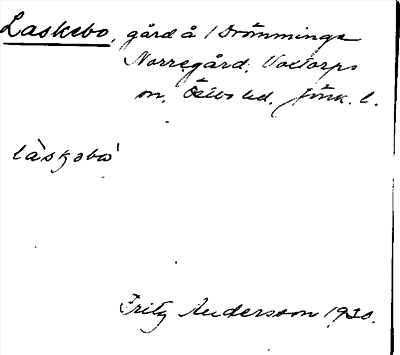 Laskebo, gård å / Drömminge
Norregård, Voxtorps
sn, Östbo hd, Jönk. l.
làskəbo'
Fritz Andersson 1930.